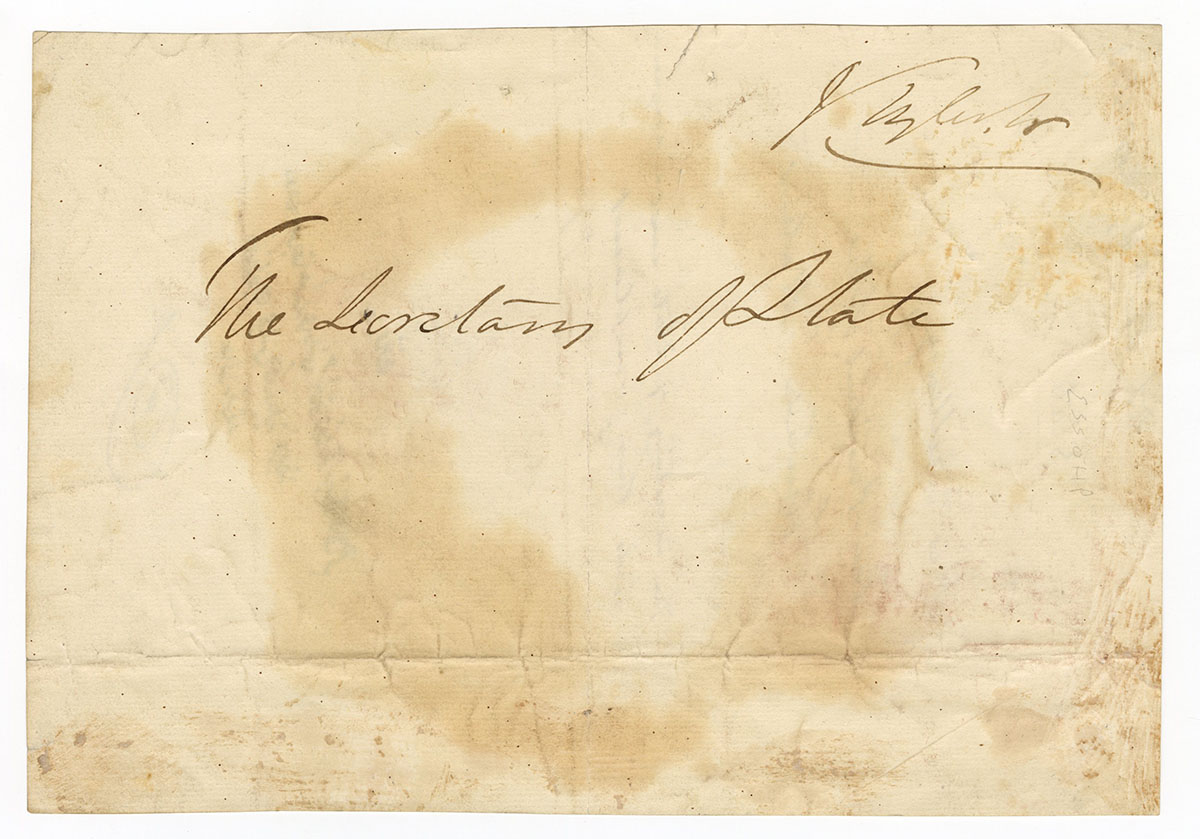 J Tyler. Jr
The Secretary of State